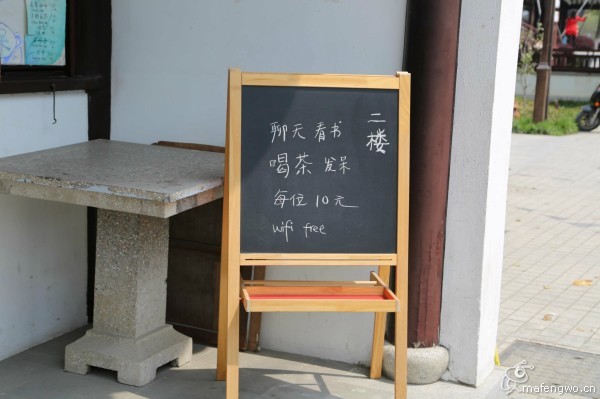 二楼
聊天 看书
喝茶 发呆
每位 10元
wifi free
mafengwo.cn